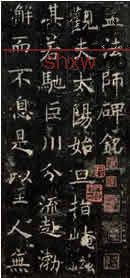 孟法師碑銘
觀夫太陽始旦指崦嵫
其若馳巨川分流赴渤
澥而不息是以至人無
shxw